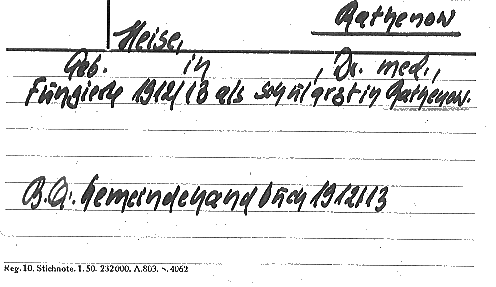 Rathenow
Heise,
Geb. in , Dr. med.,
Fungierte 1912/13 als Schularzt in Rathenow.
B.Q. Gemeindehandbuch 1912/13
Reg. 10. Stichnote. 1. 50. 232000. A.803. 4062